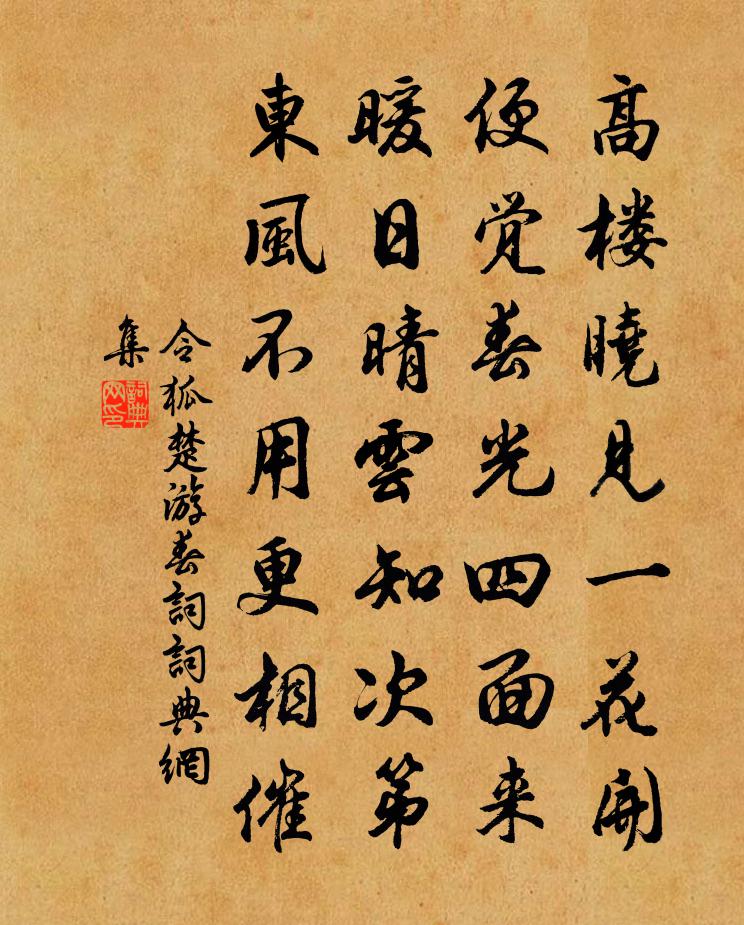 高楼曉見一花開
便覚春光四面来
暖日晴雲知次第
東風不用更相催
令狐楚游春詞詞典網
集
詞典
网印